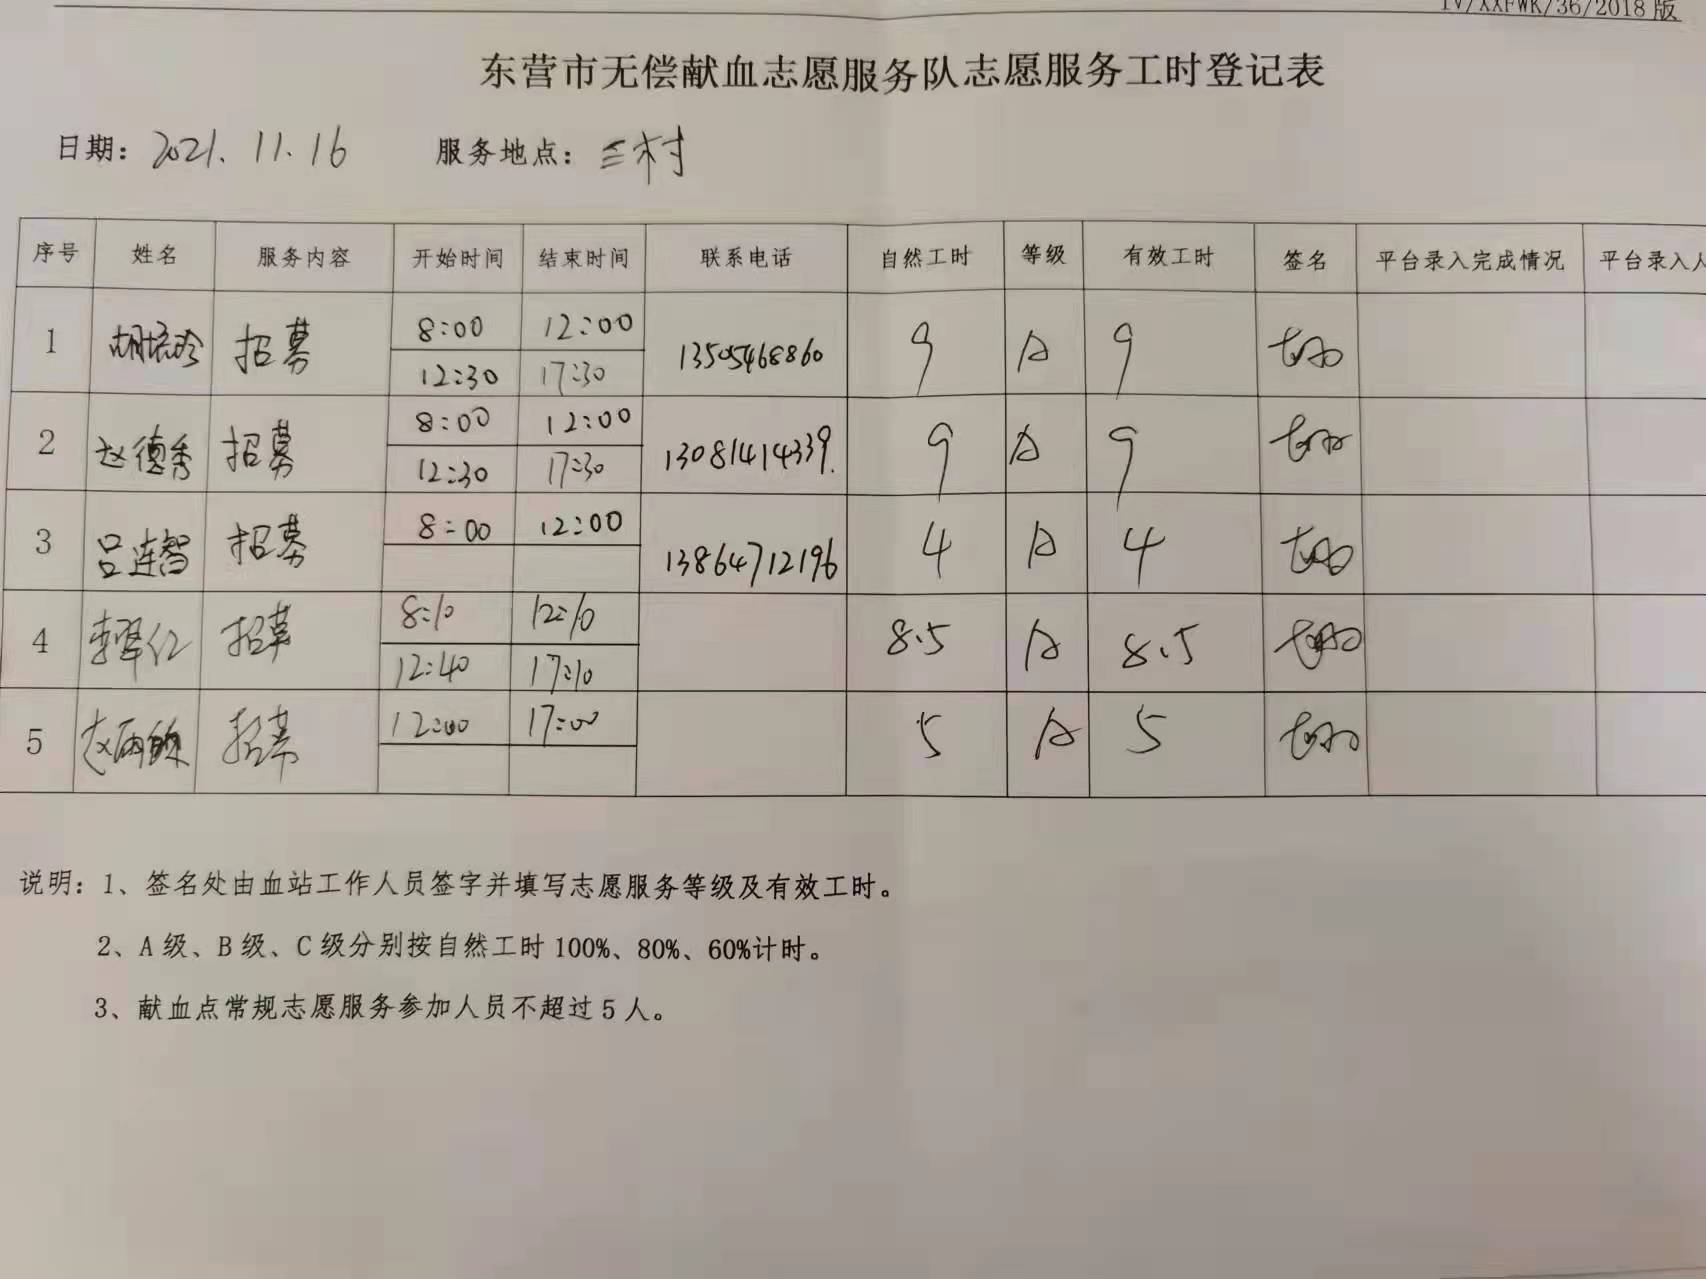 IV/XXFWK/36/2018版
东营市无偿献血志愿服务队志愿服务工时登记表
日期: 2021.11.16 服务地点: 三村
序号 姓名 服务内容 开始时间 结束时间 联系电话 自然工时 等级 有效工时 签名 平台录入完成情况 平台录入人
1 招募 8:00 12:00 13505468860 9 A 9
12:30 17:30
2 赵德秀 招募 8:00 12:00 13081414339. 9 A 9
12:30 17:30
3 吕连智 招募 8:00 12:00 13864712196 4 A 4
4 招募 8:10 12:10 8.5 A 8.5
12:40 17:10
5 招募 12:00 17:00 5 A 5
说明: 1、签名处由血站工作人员签字并填写志愿服务等级及有效工时。
2、A级、B级、C级分别按自然工时100%、80%、60%计时。
3、献血点常规志愿服务参加人员不超过5人。